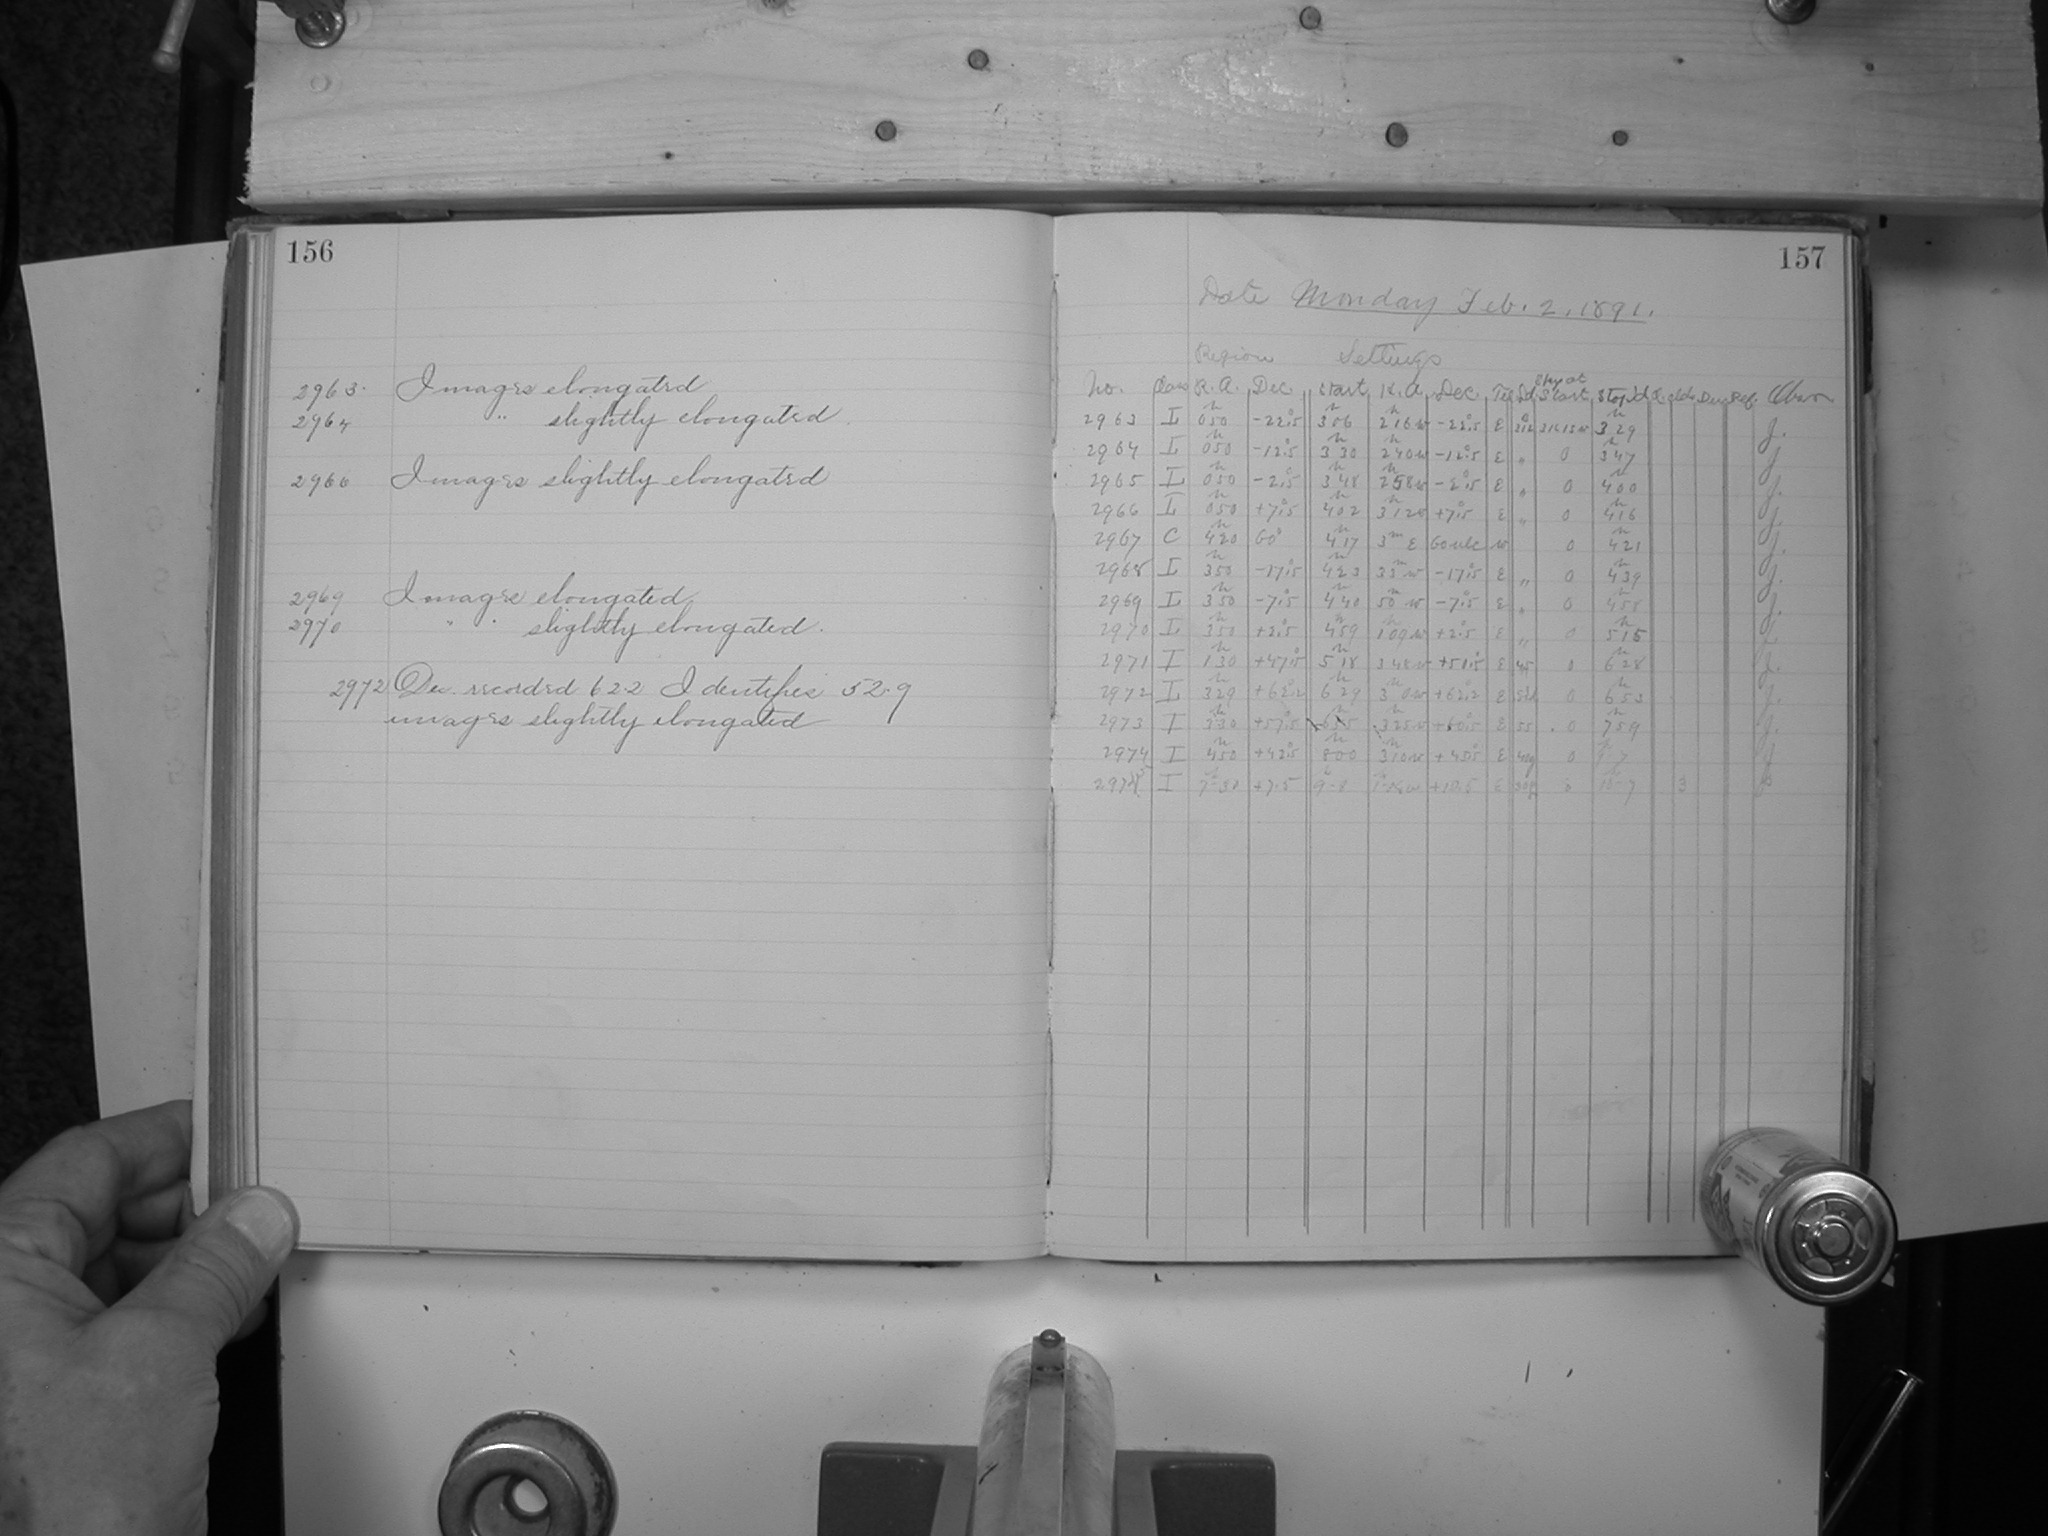 156
2963. Images elongated
2964 " slightly elongated.
2966 Images slightly elongated
2969 Images elongated.
2970 " " slightly elongated.
2972 Dec. recorded 62.2 Identifies 52.9
images slightly elongated
157
Date Monday Feb. 2, 1891.
Region Settings
No. Class R.A. Dec. Start H.A. Dec. Tel Sky at Start Stop'd Obser
2963 L 050 -22.5 306 216w -22.5 E 329 J.
2964 L 050 -12.5 330 240w -12.5 E " 0 347 J.
2965 L 050 -2.5 348 258w -2.5 E " 0 400 J.
2966 L 050 +7.5 402 312w +7.5 E " 0 416 J.
2967 C 420 60° 417 3m E 60 w 0 421 J.
2968 L 350 -17.5 423 33m w -17.5 E " 0 439 J.
2969 L 350 -7.5 440 50m w -7.5 E " 0 455 J.
2970 L 350 +2.5 459 109w +2.5 E " 0 515 J.
2971 I 130 +47.5 518 348w +50.5 E 45 0 628 J.
2972 L 329 +62.2 629 30w +62.2 E 0 653 J.
2973 I 330 +57.5 655 325w +60.5 E 55 0 759 J.
2974 I 450 +42.5 800 310w +45.5 E 0 9 7
I 7-30 +7.5 9-8 +10.5 E 0 10-7 3